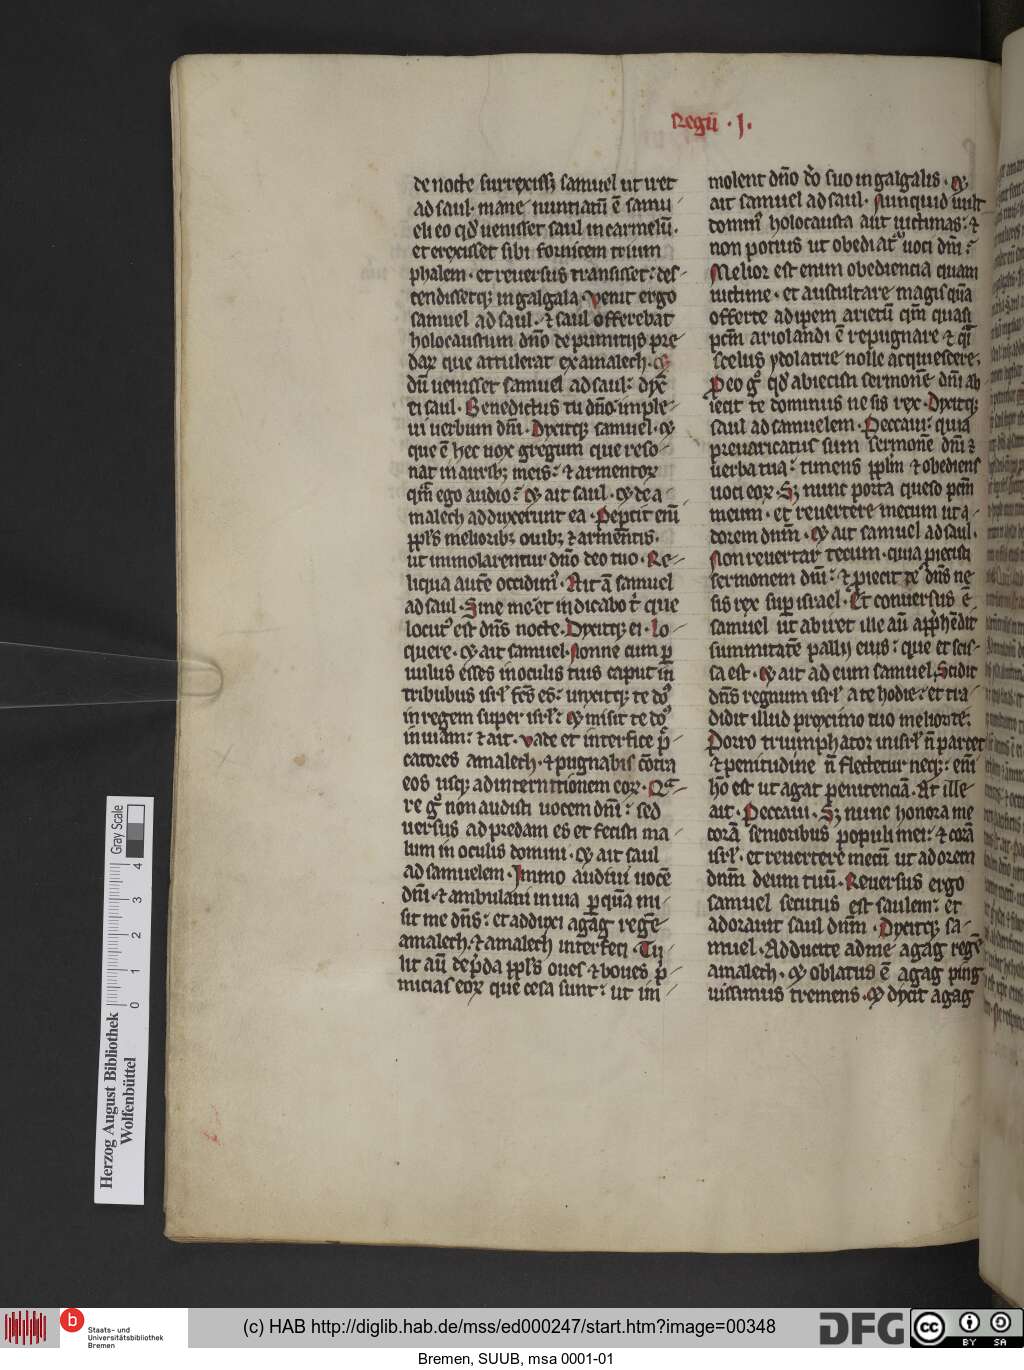 Regũ · J ·
de nocte surrexiss; samuel ut iret
ad saul · mane nuntiatũ ē samu
eli eo qđ uenisset saul in carmelũ ·
et erexisset sibi fornicem trium
phalem · et reuersus transisset : des
cendissetq; in galgala · Venit ergo
samuel ad saul · ⁊ saul offerebat
holocaustum dño de primitijs pre
daꝝ que attulerat ex amalech · ꝯ
dũ uenisset samuel ad saul : dyx̄
ti saul · Benedictus tu dño : imple
ui uerbum dñi · Dyxitq; samuel · ꝯ
que ē hec uox gregum que reso
nat in auribꝫ meis : ⁊ armentoꝝ
qm̄ ego audio : ꝯ ait saul · ꝯ de a
malech adduxerunt ea · Pepcit eñi
ppl̄s meliorib; ouib; ⁊ armentis ·
ut immolarentur dño deo tuo · Re
liqua aute occidim9 · Ait ā samuel
ad saul · Sine me et indicabo t̄ que
locut9 est dñs nocte · Dyxitq; ei · lo
quere · ꝯ ait samuel · Nonne cum p̱
uulus esses in oculis tuis caput in̄
tribubus isrl̄ fc̄s es : unxitq; te do9
in regem super isrl̄ : ꝯ misit te do9
in uiam : ⁊ ait · vade et interfice p̄
catores amalech · ⁊ pugnabis cōtra
eos usq; ad internitionem eoꝝ · Qa
re g° non audisti uocem dñi : sed
uersus ad predam es et fecisti ma
lum in oculis domini · ꝯ ait saul
ad samuelem · Immo audiui uocē
dñi · ⁊ ambulaui in uia p̱ quā mi
sit me dñs : et adduxi agag regē
amalech · ⁊ amalech interfeci · Tu
lit aũ de p̄da ppl̄s oues ⁊ boues p̄
micias eoꝝ que cesa sunt : ut im
molent dño do suo in galgalis · ꝯ
ait samuel ad saul · Nunquid uult
domin9 holocausta aut uictimas : ⁊
non potius ut obediat uoci dñi :
Melior est enim obediencia quam
uictime · et auscultare magis quā
offerre adipem arietũ qm̄ quasi
pctm̄ ariolandi ē repugnare ⁊ q̄i
scelus ydolatrie nolle acquiescere ·
Pro eo g° qđ abiecisti sermonē dñi ab
iecit te dominus ne sis rex · Dyxitq;
saul ad samuelem · Peccaui : quia
preuaricatus sum sermonē dñi ⁊
uerba tua : timens pplm̄ ⁊ obediens
uoci eoꝝ · S; nunc porta queso pctm̄
meum · et reuertere mecum ut a
dorem dnm̄ · ꝯ ait samuel ad saul ·
Non reuertar tecum · quia piecisti
sermonem dñi : ⁊ piecit te dñs ne
sis rex sup israel · Et conuersus ē
samuel ut abiret ille aũ app̄hēdit
summitatē pallij eius : que et scis
sa est · ꝯ ait ad eum samuel · Scidit
dñs regnum isrl̄ a te hodie : et tra
didit illud proximo tuo meliori te :
Porro triumphator in isrl̄ n̄ parcet
⁊ penitudine n̄ flectetur neq; : eñi
hō est ut agat penitenciā · At ille
ait · Peccaui · S; nunc honora me
corā senioribus populi mei : ⁊ corā
isrl̄ · et reuertere mecũ ut adorem
dnm̄ deum tuũ · Reuersus ergo
samuel secutus est saulem : et
adorauit saul dnm̄ · Dyxitq; sa
muel · Adducite ad me agag regē
amalech · ꝯ oblatus ē agag ping
uissimus tremens · ꝯ dyxit agag
Herzog August Bibliothek
Wolfenbüttel
Gray Scale
0 1 2 3 4
b
Staats- und
Universitätsbibliothek
Bremen
(c) HAB http://diglib.hab.de/mss/ed000247/start.htm?image=00348
DFG
cc BY SA
Bremen, SUUB, msa 0001-01